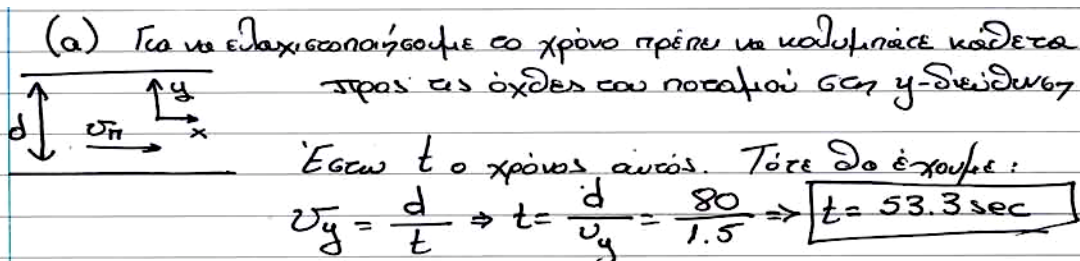 (α) Για να ελαχιστοποιήσουμε το χρόνο πρέπει να κολυμπάτε κάθετα
προς τις όχθες του ποταμού στη y-διεύθυνση
y
d
υπ
x
Έστω t ο χρόνος αυτός. Τότε θα έχουμε:
υy = d/t ⇒ t = d/υy = 80/1.5 ⇒ t = 53.3 sec